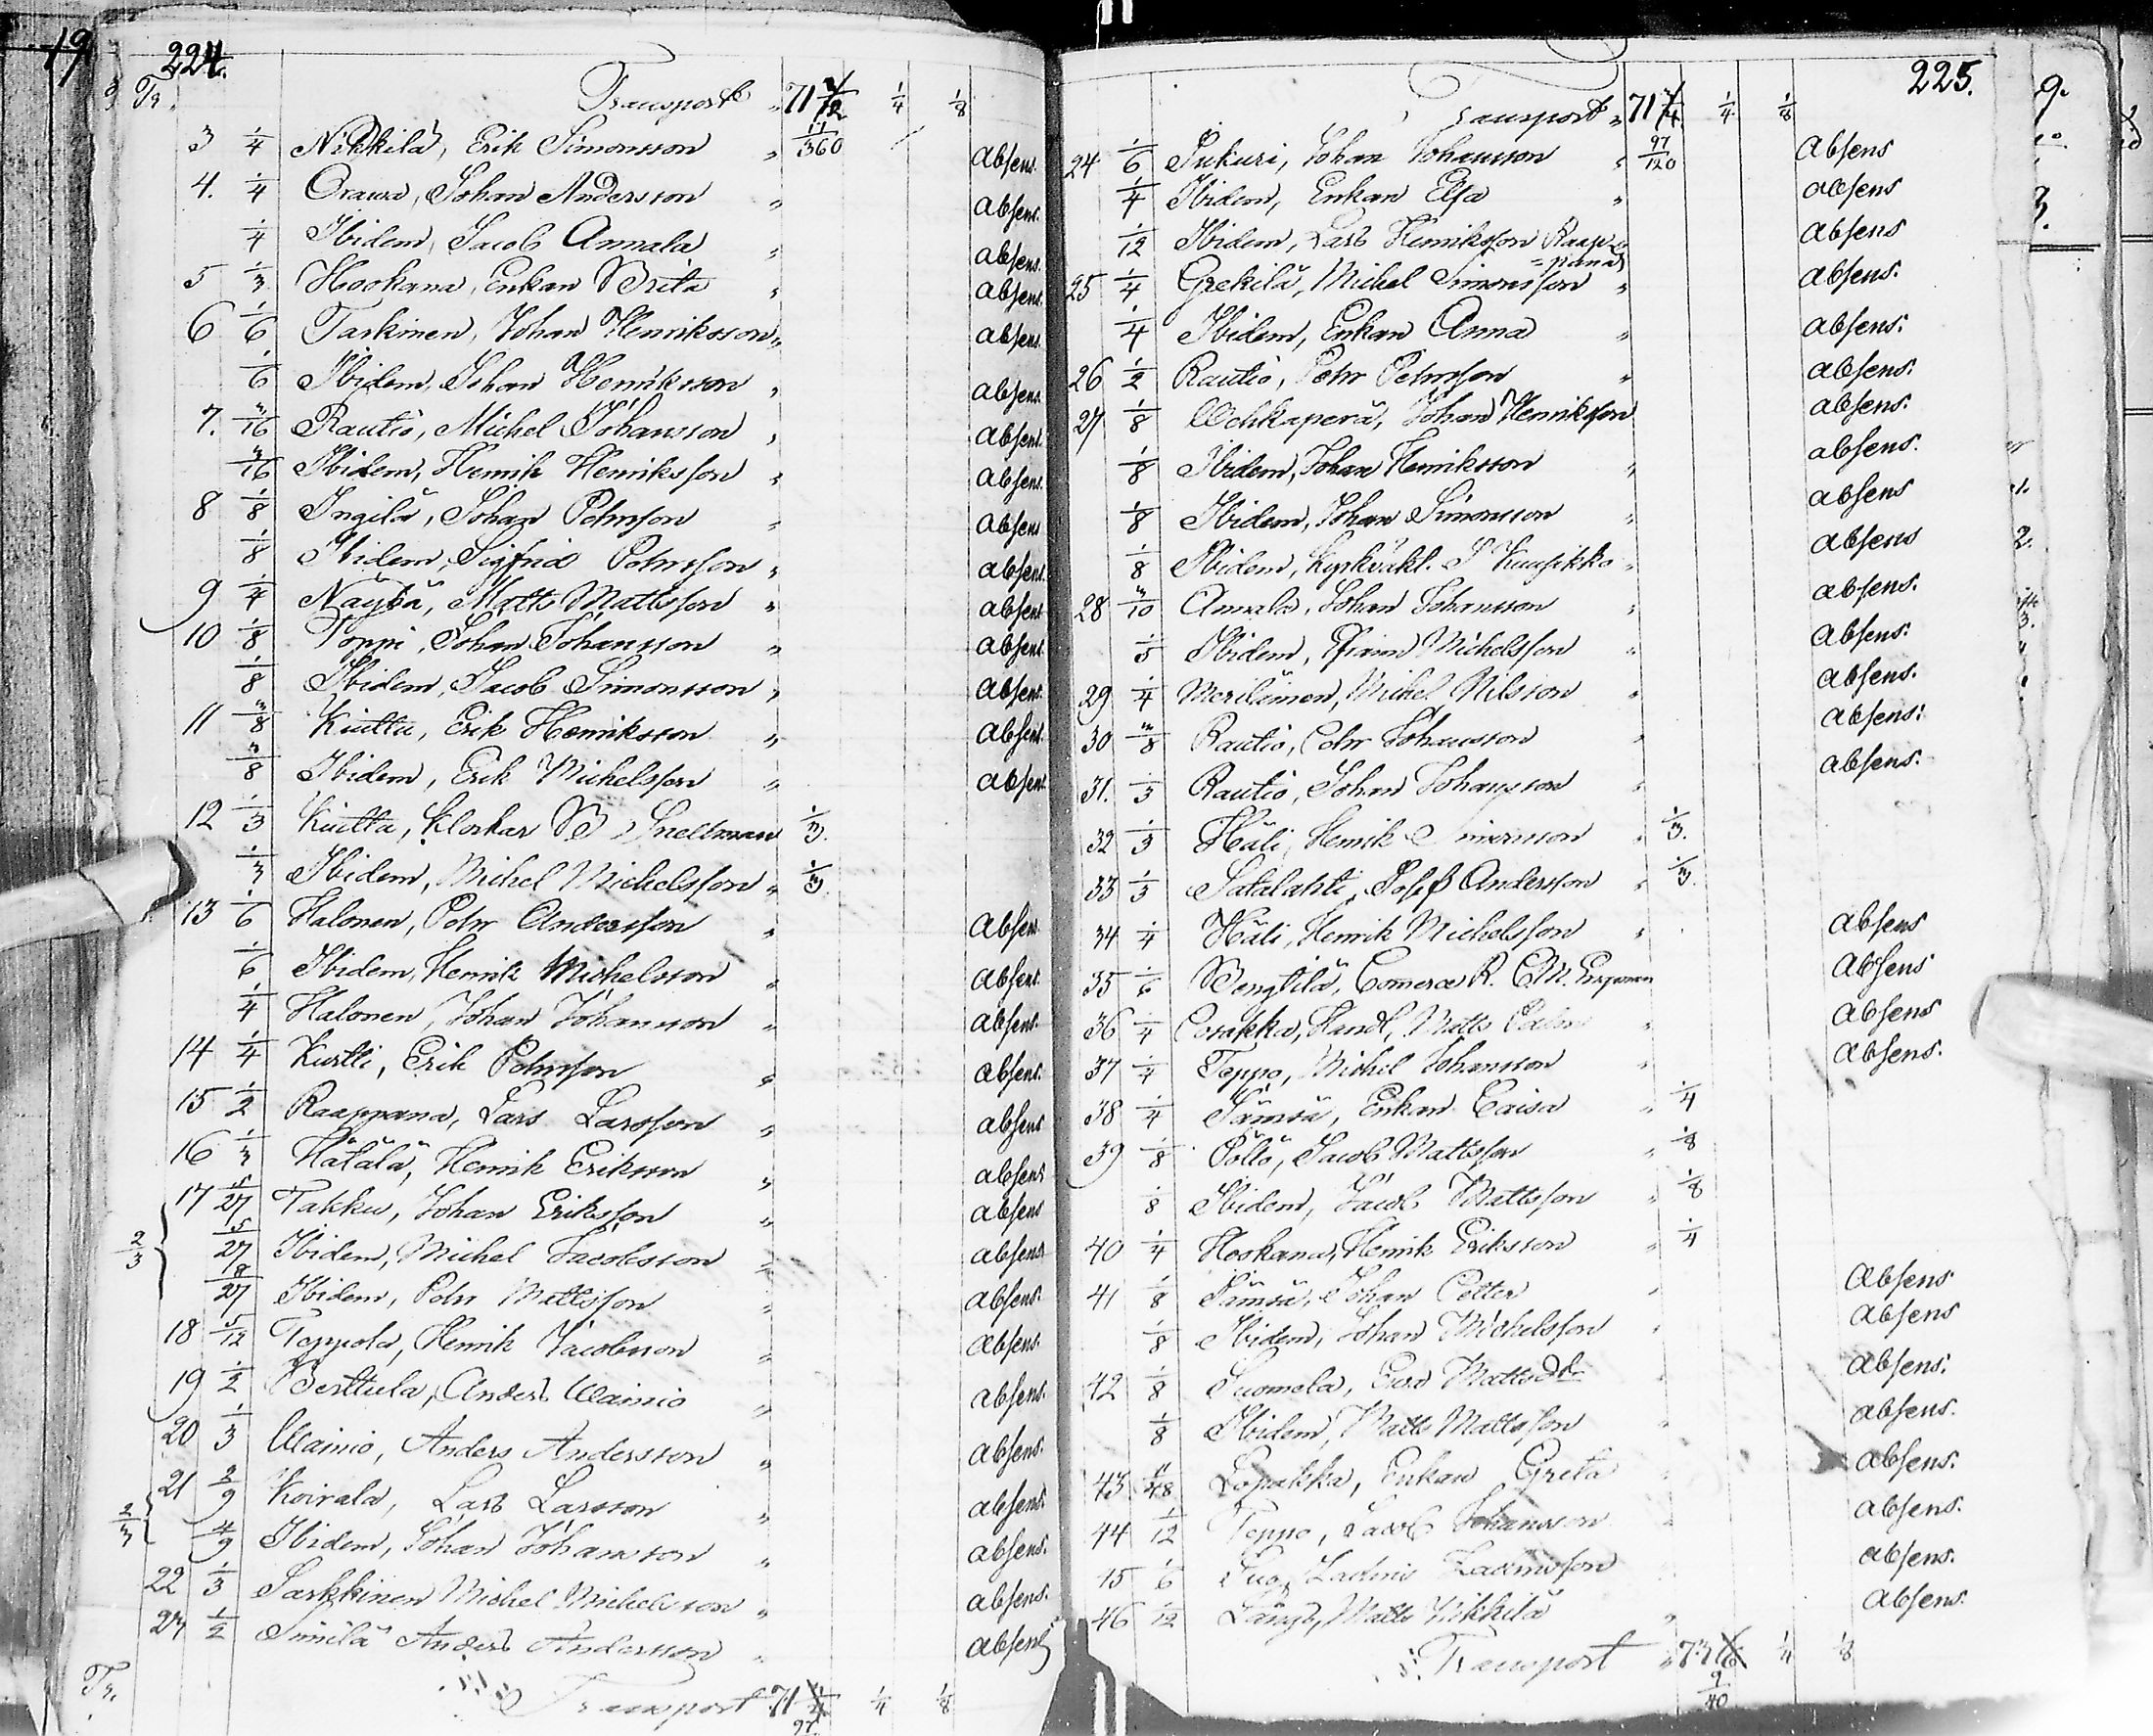 19
224.
Tr. Transport " 71 1/4 1/8
11/360
3 1/4 Nikkilä, Erik Simonsson " absens.
4. 1/4 Orawa, Johan Andersson " absens.
1/4 Ibidem, Jacob Annala " absens.
5 1/3 Hookana, Enkan Brita " absens.
6 1/6 Tarkinen, Johan Henriksson " absens.
1/6 Ibidem, Johan Henriksson " absens.
7. 3/16 Rautio, Michel Johansson " absens.
3/16 Ibidem, Henrik Henriksson " absens.
8 1/8 Ingilä, Johan Pehrsson " absens
1/8 Ibidem, Sigfrid Pehrsson " absens.
9 1/4 Matts Mattsson " absens
10 1/8 Toppi, Johan Johansson " absens
1/8 Ibidem, Jacob Simonsson " absens.
11 3/8 Kiuttu, Erik Henriksson " absens.
3/8 Ibidem, Erik Michelsson " absens
12 1/3 Kiuttu, Klockar B Snellman 1/3.
1/3 Ibidem, Michel Michelsson " 1/3.
13 1/6 Halonen, Pehr Andersson " absens
1/6 Ibidem, Henrik Michelsson " absens.
1/4 Halonen, Johan Johansson " absens.
14 1/4 Kurtti, Erik Pehrsson " absens.
15 1/2 Raappana, Lars Larsson " absens
16 1/3 Hätälä, Henrik Eriksson " absens
17 5/27 Takku, Johan Eriksson " absens
2/3 5/27 Ibidem, Michel Jacobsson " absens
8/27 Ibidem, Pehr Mattsson " absens.
18 5/12 Teppola, Henrik Jacobsson " absens.
19 1/2 Berttula, Anders Wainio " absens.
20 1/3 Wainio, Anders Andersson " absens.
21 2/9 Koirala, Lars Larsson " absens.
2/3 4/9 Ibidem, Johan Johansson " absens.
22 1/3 Sarkkinen Michel Michelsson " absens.
23 1/2 Similä Anders Andersson " absens
Tr. Transport 71 1/4 1/8
97
225.
Transport " 71 1/4 1/8
97/120
24 1/6 Pukuri, Johan Johansson " absens
1/4 Ibidem, Enkan Elsa " absens
1/12 Ibidem, Lars Henriksson Raap-
=pana absens
25 1/4 Grekilä, Michel Simonsson " absens.
1/4 Ibidem, Enkan Anna " absens.
26 1/2 Rautio, Pehr Pehrsson " absens.
27 1/8 Wehkaperä, Johan Henriksson absens.
1/8 Ibidem, Johan Henriksson " absens.
1/8 Ibidem, Johan Simonsson " absens
1/8 Ibidem, Kyrkväkt. absens
28 3/10 Annala, Johan Johansson " absens.
1/5 Ibidem, Efraim Michelsson " absens.
29 1/4 Meriläinen, Michel Nilsson " absens.
30 3/8 Rautio, Pehr Johansson " absens.
31. 1/3 Rautio, Johan Johansson " absens.
32 1/3 Häli, Henrik Simonsson " 1/3.
33 1/3 Satalahti, Josef Andersson " 1/3.
34 1/4 Häli, Henrik Michelsson " absens
35 1/6 Bengtilä, Comerce R. absens
36 1/4 Handl, Matts absens
37 1/4 Teppo, Michel Johansson " absens.
38 1/4 Jämsä, Enkan Caisa " 1/4
39 1/8 Pöllö, Jacob Mattsson " 1/8
1/8 Ibidem, Jacob Mattsson " 1/8
40 1/4 Hookana, Henrik Eriksson " 1/4
41 1/8 Jämsä, Johan Petter " absens
1/8 Ibidem, Johan Michelsson " absens
42 1/8 Suomela, Matts Dr absens.
1/8 Ibidem, Matts Mattsson " absens.
43 11/48 Lopakka, Enkan Greta absens.
44 1/12 Teppo, Jacob Johansson absens.
45 1/6 absens.
46 1/12 Matts Nikkilä absens.
Transport " 73 1/4 1/8
9/40